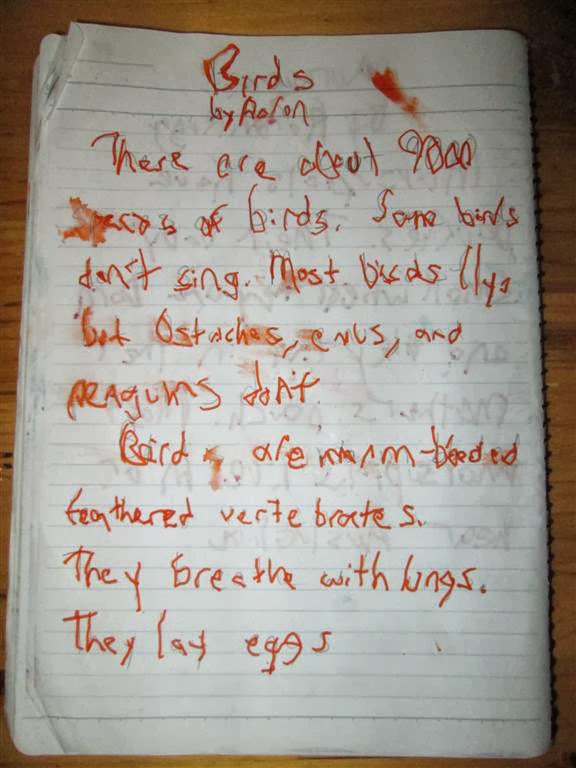 Birds
by Aaron
There are about 9000
species of birds. Some birds
don't sing. Most birds fly,
but Ostriches, emus, and
penguins don't
Birds are warm-blooded
feathered vertebrates.
They breathe with lungs.
They lay eggs